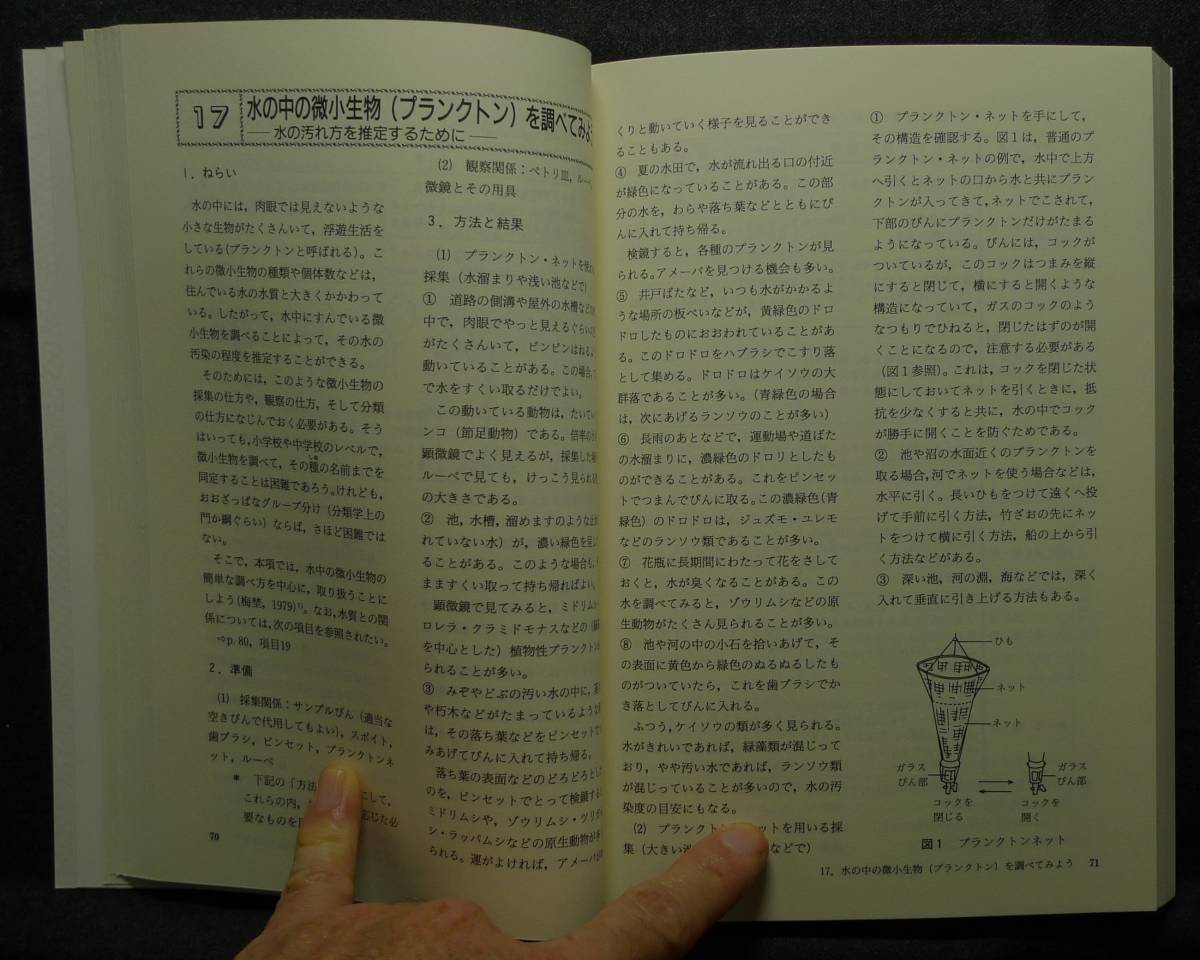 17 水の中の微小生物（プランクトン）を調べてみよ
―水の汚れ方を推定するために―
1．ねらい
水の中には，肉眼では見えないような
小さな生物がたくさんいて，浮遊生活を
している（プランクトンと呼ばれる）。こ
れらの微小生物の種類や個体数などは，
住んでいる水の水質と大きくかかわって
いる。したがって，水中にすんでいる微
小生物を調べることによって，その水の
汚染の程度を推定することができる。
そのためには，このような微小生物の
採集の仕方や，観察の仕方，そして分類
の仕方になじんでおく必要がある。そう
はいっても，小学校や中学校のレベルで，
微小生物を調べて，その種の名前までを
同定することは困難であろう。けれども，
おおざっぱなグループ分け（分類学上の
門か綱ぐらい）ならば，さほど困難では
ない。
そこで，本項では，水中の微小生物の
簡単な調べ方を中心に，取り扱うことに
しよう（梅埜，1979）¹⁾。なお，水質との関
係については，次の項目を参照されたい。
⇒p.80，項目19
2．準備
(1) 採集関係：サンプルびん（適当な
空きびんで代用してもよい），スポイト，
歯ブラシ，ピンセット，プランクトンネ
ット，ルーペ
* 下記の「方法 にして，
これらの内， 応じた必
要なものを
70
(2) 観察関係：ペトリ皿，ルーペ
微鏡とその用具
3．方法と結果
(1) プランクトン・ネットを使
採集（水溜まりや浅い池などで）
① 道路の側溝や屋外の水槽など
中で，肉眼でやっと見えるぐらい
がたくさんいて，ピンピンはねる
動いていることがある。この場合，
で水をすくい取るだけでよい。
この動いている動物は，たいてい
ンコ（節足動物）である。倍率の
顕微鏡でよく見えるが，採集した
ルーペで見ても，けっこう見られる
の大きさである。
② 池，水槽，溜めますのような
れていない水）が，濃い緑色を呈し
ることがある。このような場合も，
まますくい取って持ち帰ればよい。
顕微鏡で見てみると，ミドリム
ロレラ・クラミドモナスなどの（
を中心とした）植物性プランクト
られることが多い。
③ みぞやどぶの汚い水の中に，
や朽木などがたまっているような
は，その落ち葉などをピンセットで
みあげてびんに入れて持ち帰る。
落ち葉の表面などのどろどろとし
のを，ピンセットでとって検鏡す
ミドリムシや，ゾウリムシ・ツリガ
シ・ラッパムシなどの原生動物が
られる。運がよければ，アメーバ
くりと動いていく様子を見ることができ
ることもある。
④ 夏の水田で，水が流れ出る口の付近
が緑色になっていることがある。この部
分の水を，わらや落ち葉などとともにび
んに入れて持ち帰る。
検鏡すると，各種のプランクトンが見
られる。アメーバを見つける機会も多い。
⑤ 井戸ばたなど，いつも水がかかるよ
うな場所の板べいなどが，黄緑色のドロ
ドロしたものにおおわれていることがあ
る。このドロドロをハブラシでこすり落
として集める。ドロドロはケイソウの大
群落であることが多い。（青緑色の場合
は，次にあげるランソウのことが多い）
⑥ 長雨のあとなどで，運動場や道ばた
の水溜まりに，濃緑色のドロリとしたも
のができることがある。これをピンセッ
トでつまんでびんに取る。この濃緑色（青
緑色）のドロドロは，ジュズモ・ユレモ
などのランソウ類であることが多い。
⑦ 花瓶に長期間にわたって花をさして
おくと，水が臭くなることがある。この
水を調べてみると，ゾウリムシなどの原
生動物がたくさん見られることが多い。
⑧ 池や河の中の小石を拾いあげて，そ
の表面に黄色から緑色のぬるぬるしたも
のがついていたら，これを歯ブラシでか
き落としてびんに入れる。
ふつう，ケイソウの類が多く見られる。
水がきれいであれば，緑藻類が混じって
おり，やや汚い水であれば，ランソウ類
が混じっていることが多いので，水の汚
染度の目安にもなる。
(2) プランクトン ットを用いる採
集（大きい などで）
① プランクトン・ネットを手にして，
その構造を確認する。図1は，普通のプ
ランクトン・ネットの例で，水中で上方
へ引くとネットの口から水と共にプラン
クトンが入ってきて，ネットでこされて，
下部のびんにプランクトンだけがたまる
ようになっている。びんには，コックが
ついているが，このコックはつまみを縦
にすると閉じて，横にすると開くような
構造になっていて，ガスのコックのよう
なつもりでひねると，閉じたはずのが開
くことになるので，注意する必要がある
（図1参照）。これは，コックを閉じた状
態にしておいてネットを引くときに，抵
抗を少なくすると共に，水の中でコック
が勝手に開くことを防ぐためである。
② 池や沼の水面近くのプランクトンを
取る場合，河でネットを使う場合などは，
水平に引く。長いひもをつけて遠くへ投
げて手前に引く方法，竹ざおの先にネッ
トをつけて横に引く方法，船の上から引
く方法などがある。
③ 深い池，河の淵，海などでは，深く
入れて垂直に引き上げる方法もある。
ひも
ネット
ネット
ガラス
びん部
ガラス
びん部
コックを
閉じる
コックを
開く
図1 プランクトンネット
17．水の中の微小生物（プランクトン）を調べてみよう 71